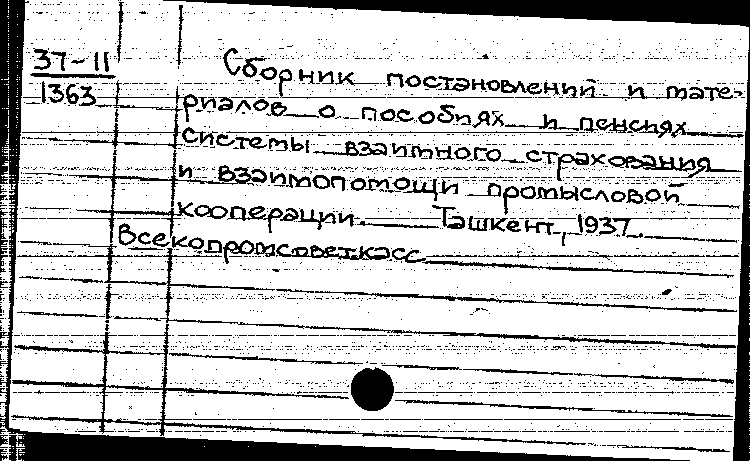 37-11
1363
Сборник постановлений и мате-
риалов о пособиях и пенсиях
системы взаимного страхования
и взаимопомощи промысловой
кооперации. Ташкент, 1937.
Всекопромсоветкасс.